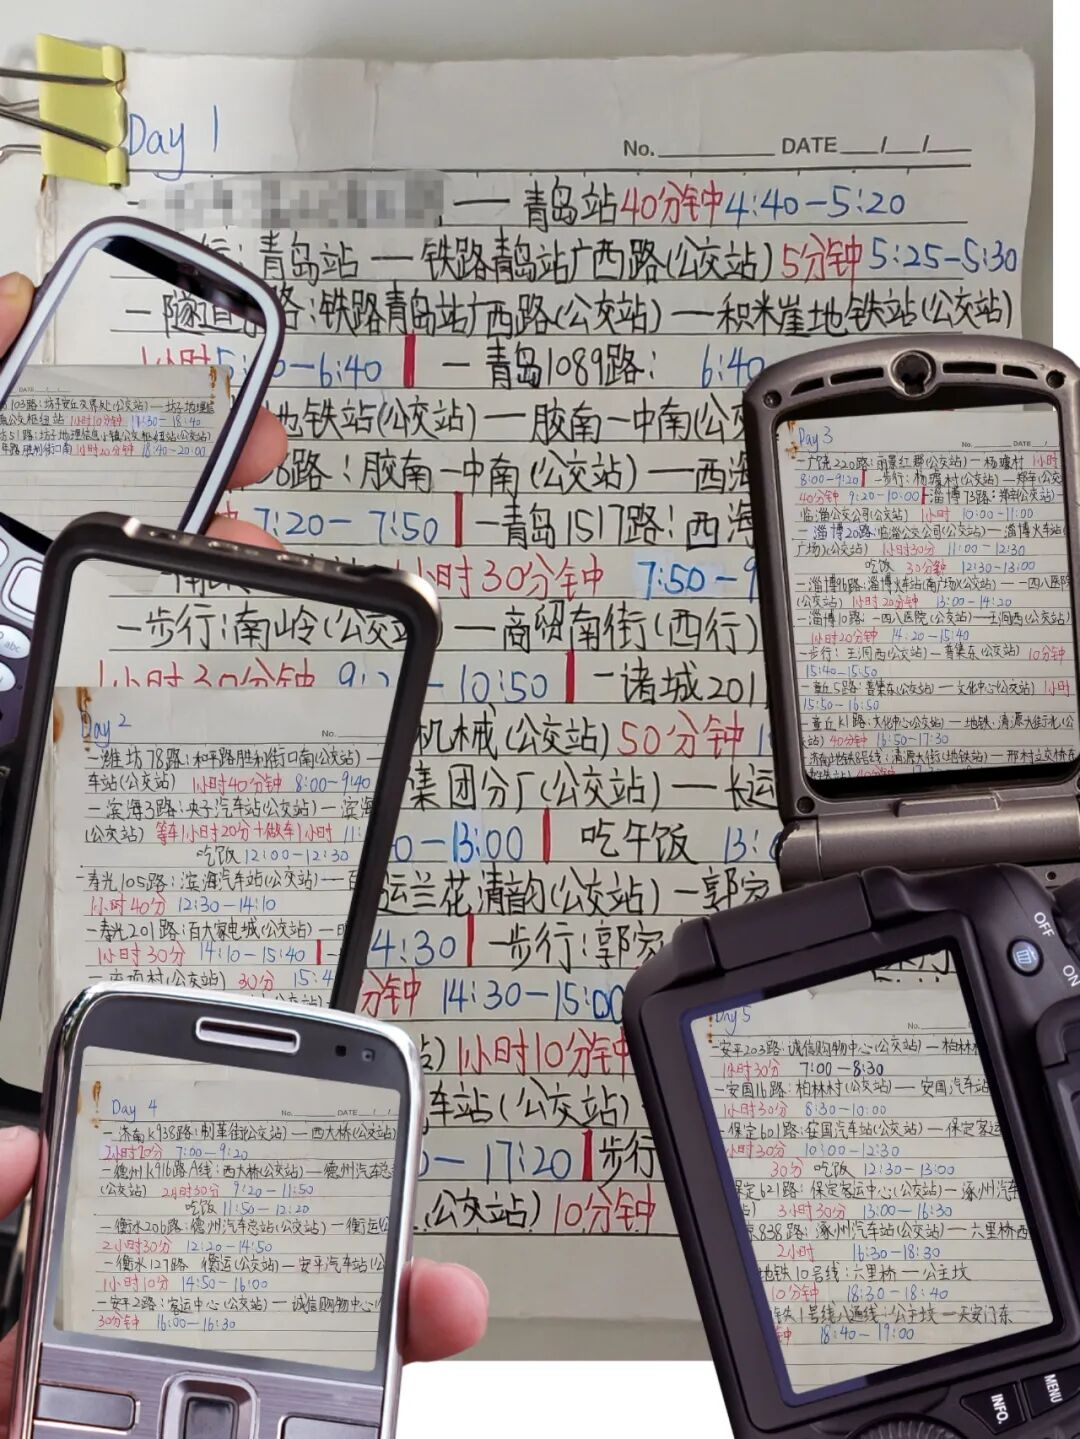 Day 1
No. DATE / /
— 青岛站 40分钟 4:40—5:20
行: 青岛站 — 铁路青岛站广西路(公交站) 5分钟 5:25-5:30
— 隧道 路:铁路青岛站广西路(公交站) — 积米崖地铁站(公交站)
1小时 —6:40 — 青岛1089路: 6:40
地铁站(公交站) — 胶南一中南(公
6路:胶南一中南(公交站) — 西海
7:20— 7:50 — 青岛1517路:西海
1小时30分钟 7:50—9
— 步行:南岭(公交站 — 商贸南街(西行)
1小时30分钟 9:2 — 10:50 — 诸城201
机械(公交站) 50分钟
集团分厂(公交站) — 长运
0—13:00 吃午饭 13:
运兰花清韵(公交站) — 郭家
4:30 — 步行:郭家
分钟 14:30—15:00
站) 1小时10分钟
车站(公交站)
— 17:20 步行
(公交站) 10分钟
DATE / /
103路:坊子安丘交界处(公交站) — 坊子地理信
公交枢纽站 1小时10分钟 17:30—18:40
51路:坊子地理信息小镇公交枢纽站(公交站)
路胜利街口南 1小时20分钟 18:40—20:00
Day 2
No.
— 潍坊78路:和平路胜利街口南(公交站) —
车站(公交站) 1小时40分钟 8:00—9:40
— 滨海3路:央子汽车站(公交站) — 滨海
(公交站) 等车1小时20分+做车1小时 11:
吃饭 12:00—12:30
— 寿光105路:滨海汽车站(公交站) — 百
1小时40分 12:30—14:10
— 寿光201路:百大家电城(公交站) —
1小时30分 14:10—15:40
村(公交站) 30分 15:4
Day 3
No. DATE /
— 广饶220路:丽景红郡(公交站) — 杨璩村 1小时
8:00—9:20 — 步行:杨璩村(公交站) — 郑辛(公交
40分钟 9:20—10:00 — 淄博73路:郑辛(公交站) —
临淄公交公司(公交站) 1小时 10:00—11:00
— 淄博20路:临淄公交公司(公交站) — 淄博火车站(
广场)(公交站) 1小时30分 11:00—12:30
吃饭 30分钟 12:30—13:00
— 淄博96路:淄博火车站(南广场)(公交站) — 一四八医院
(公交站) 1小时20分钟 13:00—14:20
— 淄博10路 一四八医院(公交站) — 王洞西(公交站)
1小时20分钟 14:20—15:40
— 步行:王洞西(公交站) — 普集东(公交站) 10分钟
15:40—15:50
— 章丘5路:普集东(公交站) — 文化中心(公交站) 1小时
15:50—16:50
— 章丘K1路:文化中心(公交站) — 地铁:清源大街
站) 40分钟 16:50—17:30
— 济南地铁8号线:清源大街(地铁站) — 邢村立交桥东
Day 4
No. DATE / /
— 济南K938路:制革街(公交站) — 西大桥(公交站)
2小时20分 7:00—9:20
— 德州K916路A线:西大桥(公交站) — 德州汽车总
(公交站) 2小时30分 9:20—11:50
吃饭 11:50—12:20
— 衡水206路:德州汽车总站(公交站) — 衡运(公
2小时30分 12:20—14:50
— 衡水127路 衡运(公交站) — 安平汽车站(公
1小时10分 14:50—16:00
— 安平2路:客运中心(公交站) — 诚信购物中心
30分钟 16:00—16:30
OFF
ON
Day 5
No.
— 安平203路:诚信购物中心(公交站) — 柏林村
1小时30分 7:00—8:30
— 安国16路:柏林村(公交站) — 安国汽车站
1小时30分 8:30—10:00
— 保定601路:安国汽车站(公交站) — 保定客运
小时30分 10:00—12:30
30分 吃饭 12:30—13:00
保定621路:保定客运中心(公交站) — 涿州汽车
站) 3小时30分 13:00—16:30
京838路:涿州汽车站(公交站) — 六里桥西
2小时 16:30—18:30
地铁10号线:六里桥 — 公主坟
10分钟 18:30—18:40
铁1号线八通线:公主坟 — 天安门东
钟 18:40—19:00
INFO.
MENU